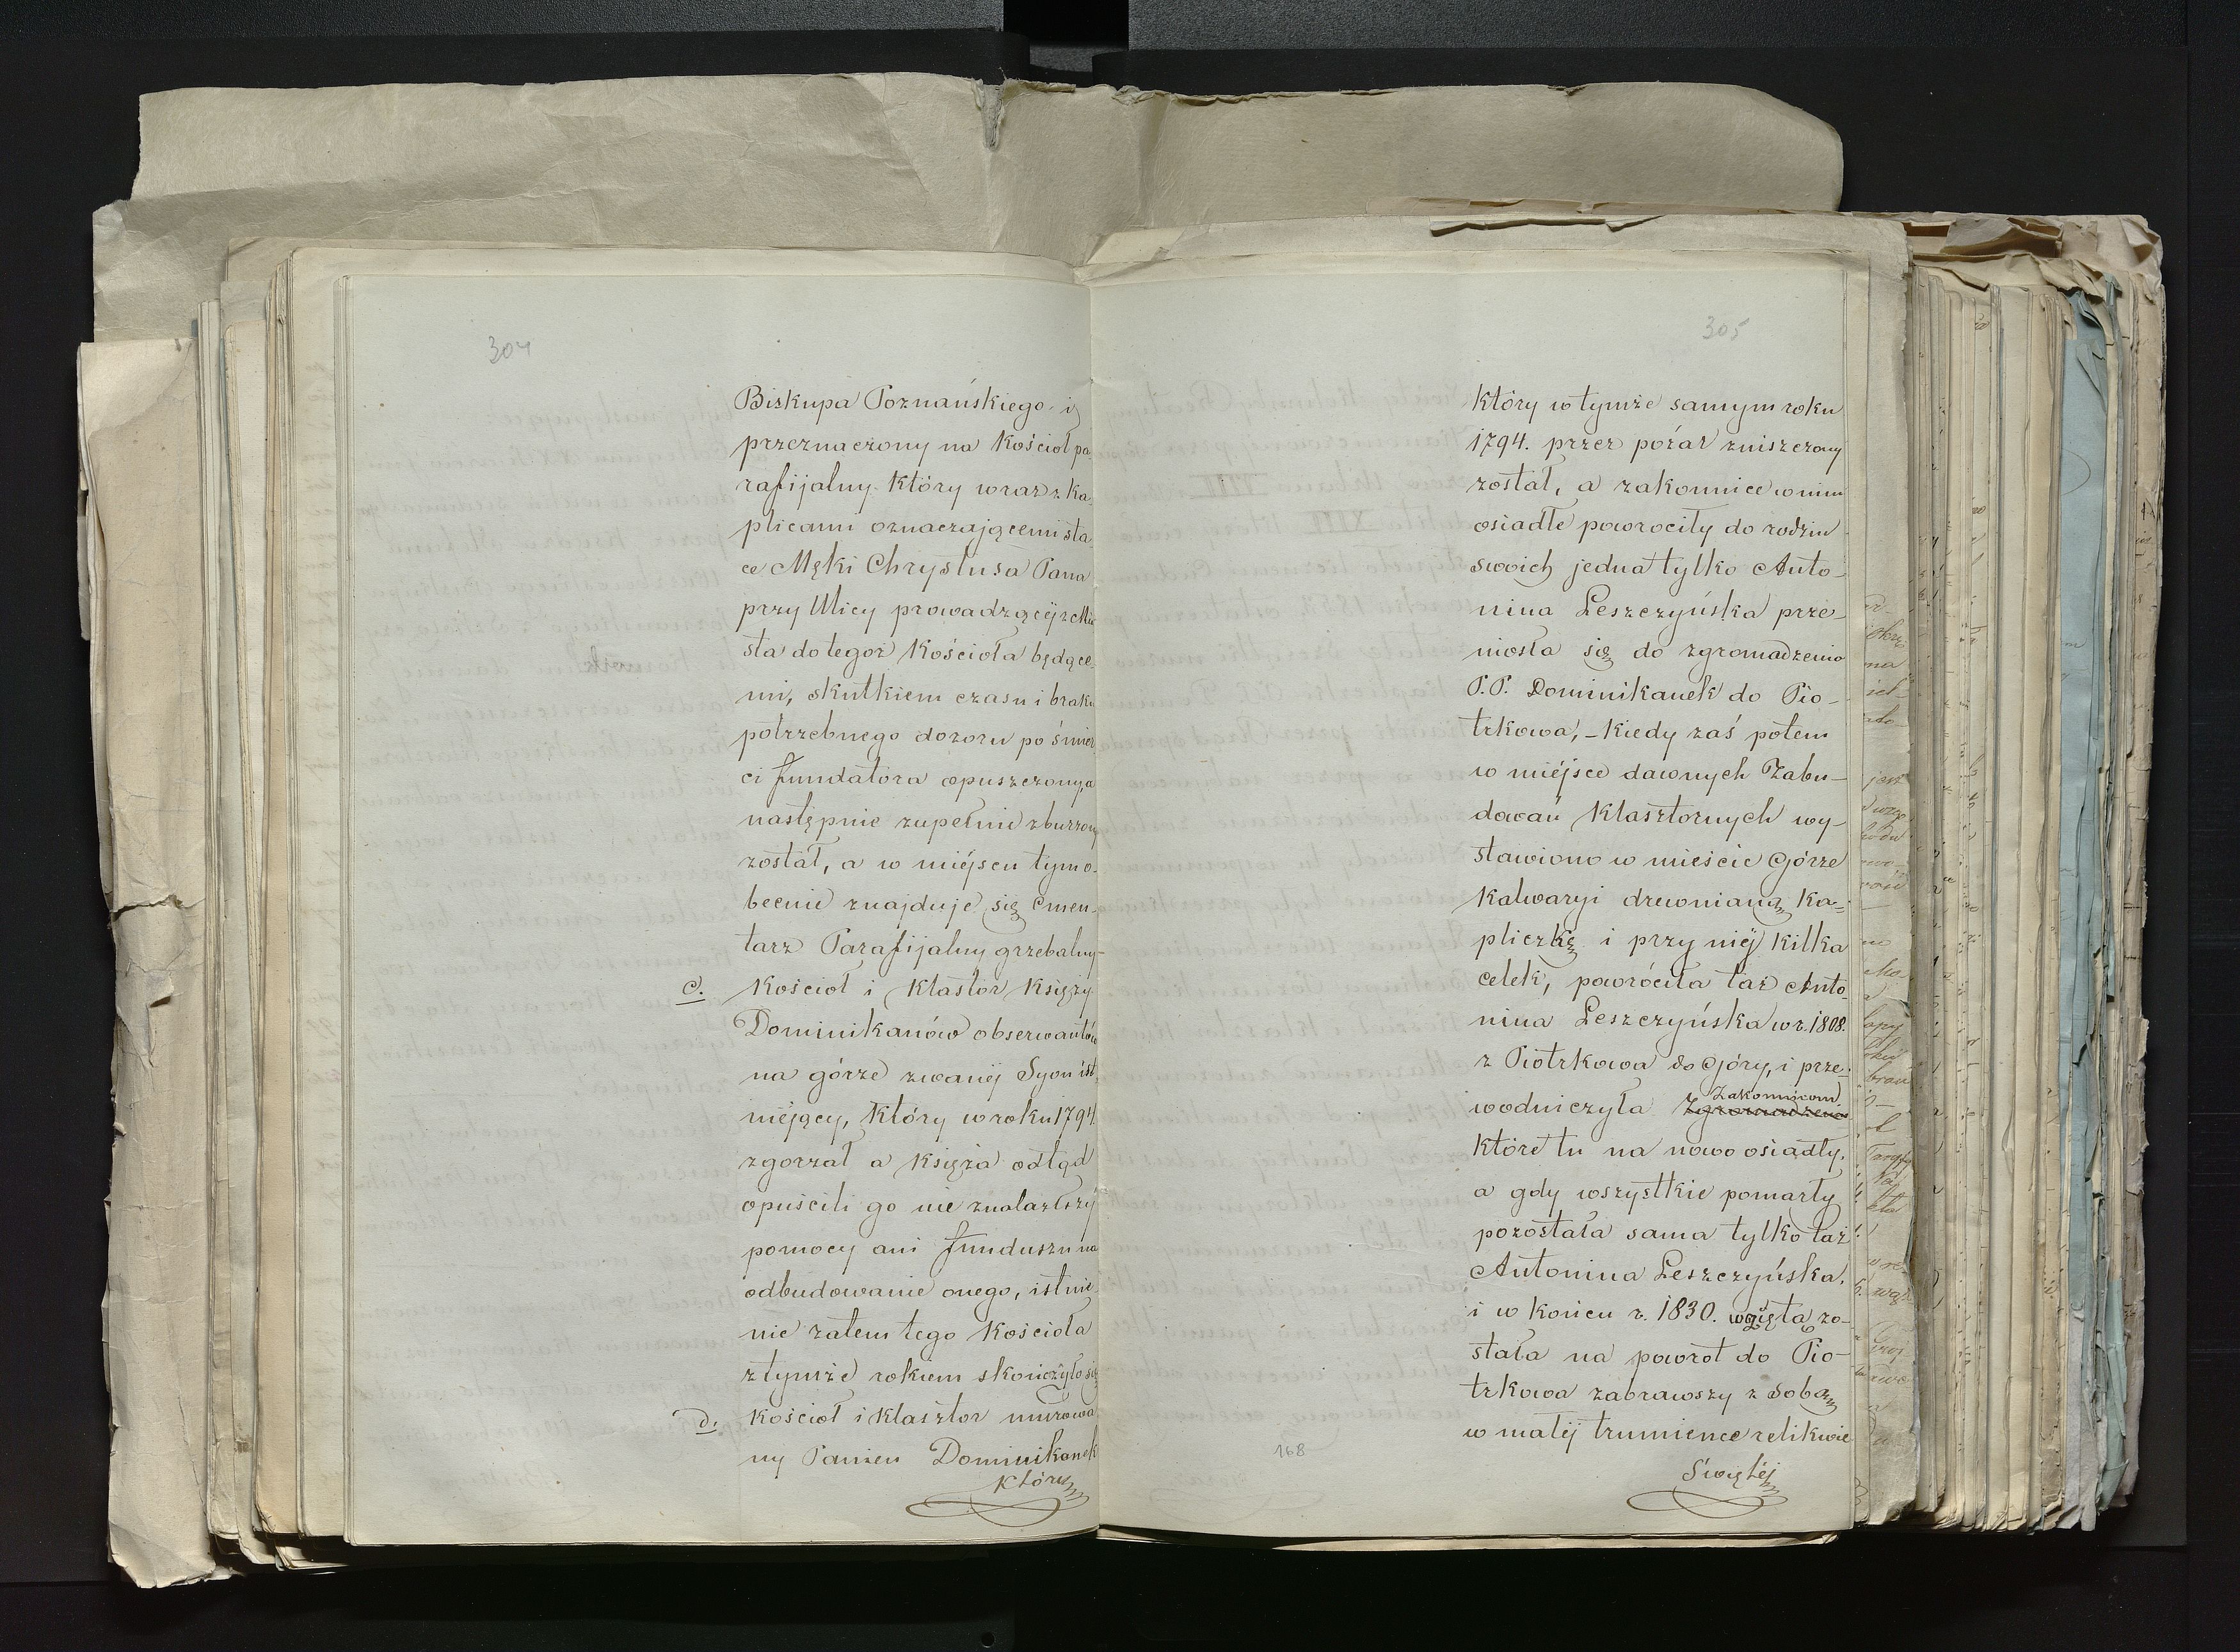 304
Biskupa Poznańskiego i
przeznaczony na Kościoł pa
rafijalny Który wraz z Ka
plicami oznaczającemi sta
ce Męki Chrystusa Pana
przy Ulicy prowadzącéj z Mia
sta do tegoż Kościoła będące
mi, skutkiem czasu i braku
potrzebnego dozoru po śmier
ci fundatora opuszczony, a
następnie zupełnie zburzony
został, a w miéjscu tym o-
becnie znajduje się Cmen-
tarz Parafijalny grzebalny-
c. Kościoł i Klasztor Księży
Dominikanów obserwantów
na górze zwanéj Syon ist,
niéjący, Który w roku 1794.
zgorzał a Księża odtąd
opuścili go nie znalazłszy
pomocy ani funduszu na
odbudowanie onego, istnie
nie zatem tego Kościoła
z tymże rokiem skończyło się
d. Kościoł i Klasztor murowa
ny Panien Dominikanek
Który
305
Który w tymże samym roku
1794. przez pożar zniszczony
został, a zakonnice w nim
osiadłe powrociły do rodzin
swoich jedna tylko Anto-
nina Leszczyńska prze-
niosła się do zgromadzenia
P.P. Dominikanek do Pio-
trkowa, - Kiedy zaś potem
w miéjsce dawnych Zabu-
dowań Klasztornych wy-
stawiono w mieście Górze
Kalwaryi drewnianą Ka-
pliczkę i przy niéj Kilka
celek, powróciła taż Anto-
nina Leszczyńska w r. 1808.
z Piotrkowa do Góry, i prze-
wodniczyła Zgromadzeniu Zakonnicom
które tu na nowo osiądły.
a gdy wszystkie pomarły
pozostała sama tylko taż
Antonina Leszczyńska,
i w Końcu r. 1830. wzięta zo-
stała na powrot do Pio-
trkowa zabrawszy z sobą
w małéj trumience relikwie
Świętéj
168